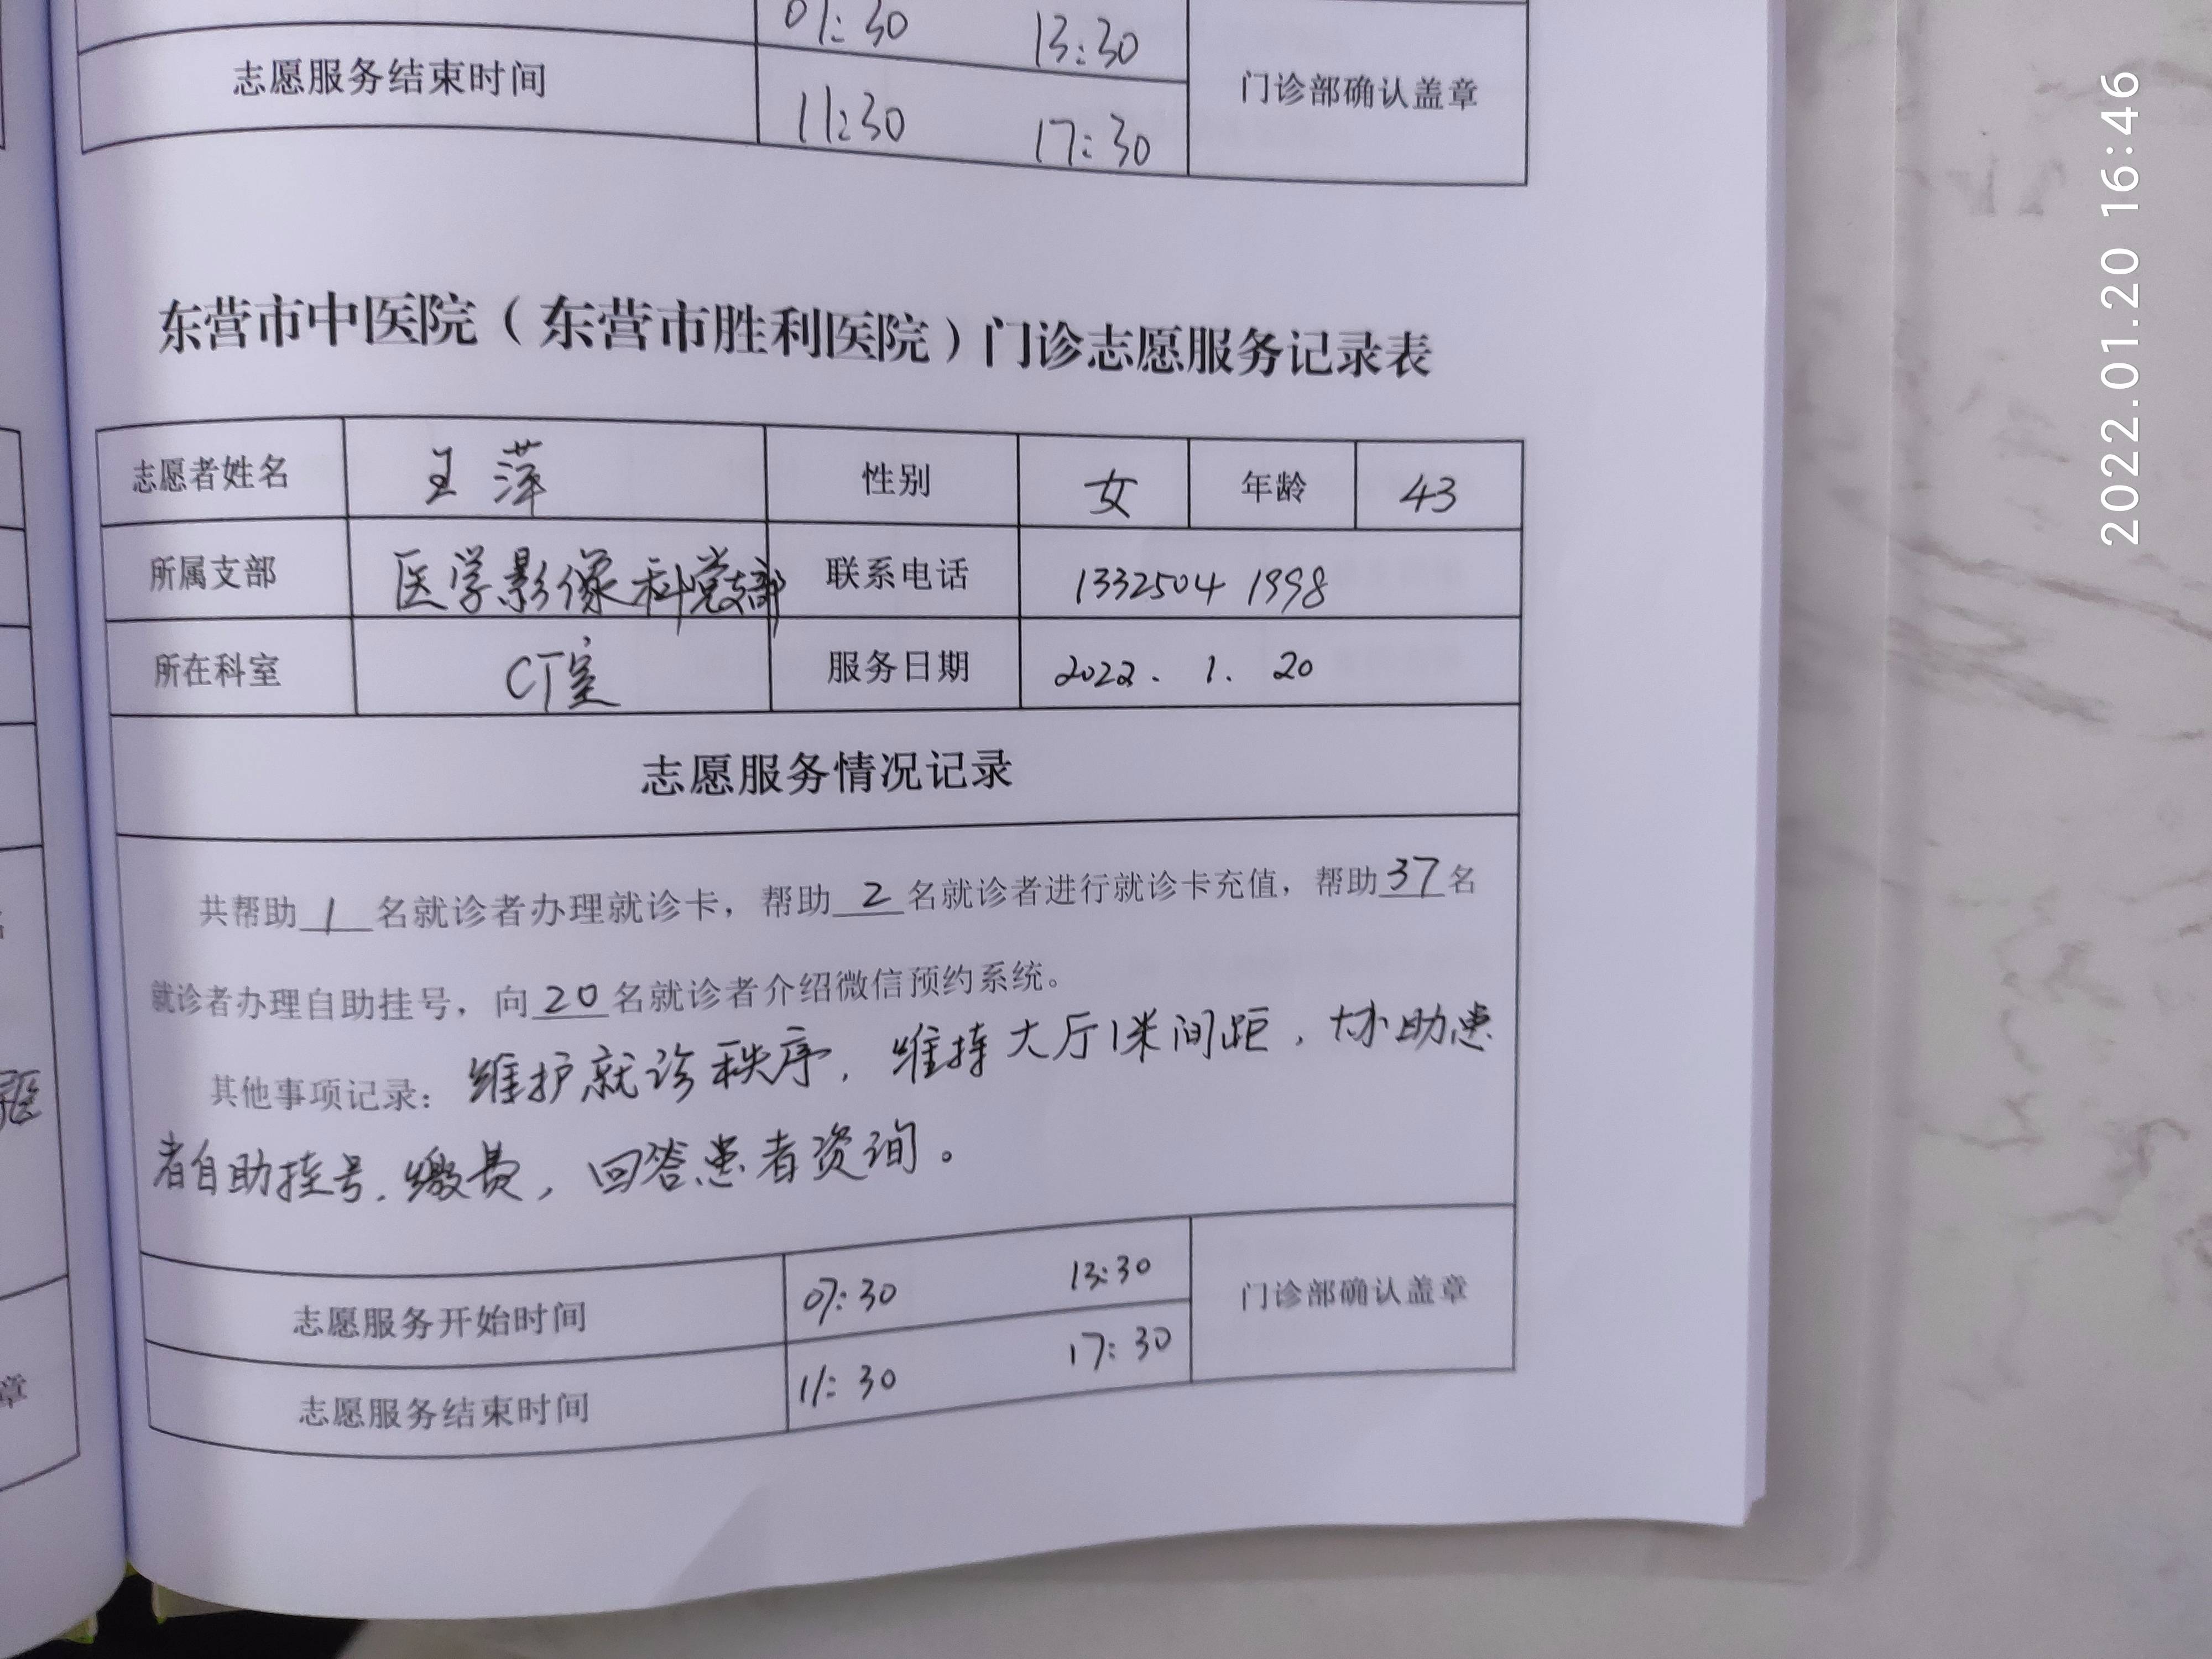 07:30 13:30
志愿服务结束时间 11:30 17:30 门诊部确认盖章
东营市中医院（东营市胜利医院）门诊志愿服务记录表
志愿者姓名 王萍 性别 女 年龄 43
所属支部 医学影像科党支部 联系电话 13325041998
所在科室 CT室 服务日期 2022. 1. 20
志愿服务情况记录
共帮助 1 名就诊者办理就诊卡，帮助 2 名就诊者进行就诊卡充值，帮助 37 名
就诊者办理自助挂号，向 20 名就诊者介绍微信预约系统。
其他事项记录：维护就诊秩序，维持大厅1米间距，协助患
者自助挂号，缴费，回答患者资询。
志愿服务开始时间 07:30 13:30 门诊部确认盖章
志愿服务结束时间 11:30 17:30
章
2022.01.20 16:46